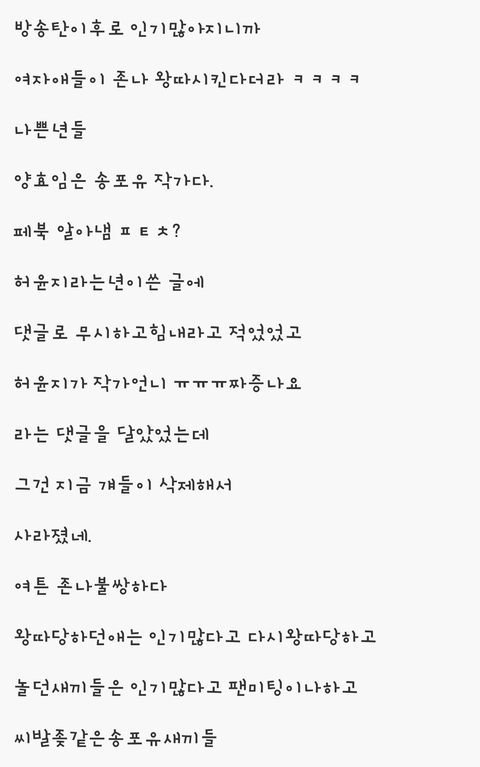 방송탄이후로 인기많아지니까
여자애들이 존나 왕따시킨다더라 ㅋㅋㅋㅋ
나쁜년들
양효임은 송포유 작가다.
페북 알아냄 ㅍㅌㅊ?
허윤지라는년이쓴 글에
댓글로 무시하고힘내라고 적었었고
허윤지가 작가언니 ㅠㅠㅠ짜증나요
라는 댓글을 달았었는데
그건 지금 걔들이 삭제해서
사라졌네.
여튼 존나불쌍하다
왕따당하던애는 인기많다고 다시왕따당하고
놀던새끼들은 인기많다고 팬미팅이나하고
씨발좆같은송포유새끼들